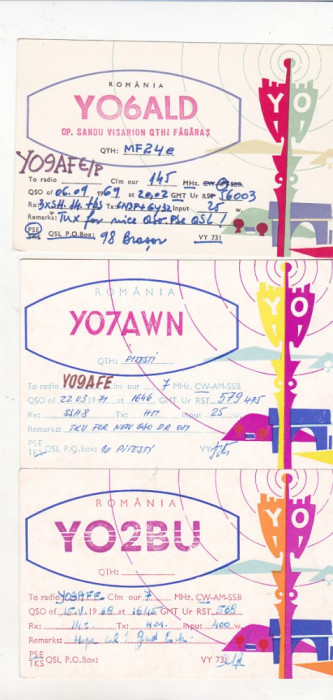 ROMÂNIA
YO6ALD
OP. SANDU VISARION QTHI FĂGĂRAȘ
QTH: MF24e
YO9AFE/P
To radio Cfm our 145 MHz. CW-AM-SSB
QSO of 06.09 1969 at 20,02 GMT Ur RST 56003
Rx: Tx: Input 25
Remarks: Tnx for nice QSO. Pse QSL!
PSE
TKS QSL P.O.Box: 98 Brașov VY 73!
YO
ROMÂNIA
YO7AWN
QTH: PITEȘTI
To radio YO9AFE Cfm our 7 MHz. CW-AM-SSB
QSO of 22.03 1971 at 1646 GMT Ur RST 579
Rx: SSH8 Tx: HM Input 25 w
Remarks: TKU FOR NEW QSO DR OM
PSE
TKS QSL P.O.Box: 10 PITEȘTI VY
YO
ROMÂNIA
YO2BU
QTH:
To radio YO9AFE Cfm our 7 MHz. CW-AM-SSB
QSO of 15.V. 1968 at 1645 GMT Ur RST 568
Rx: Tx: H.M. Input 400 w
Remarks: Hope
PSE
TKS QSL P.O.Box: VY 73!
YO